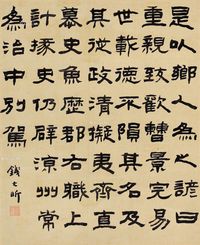 是以鄉人為之諺曰
重親致歡曹景完易
世載德不隕其名及
其從政清擬夷齊直
慕史魚歷郡右職上
計掾史仍辟涼州常
為治中別駕
錢大昕